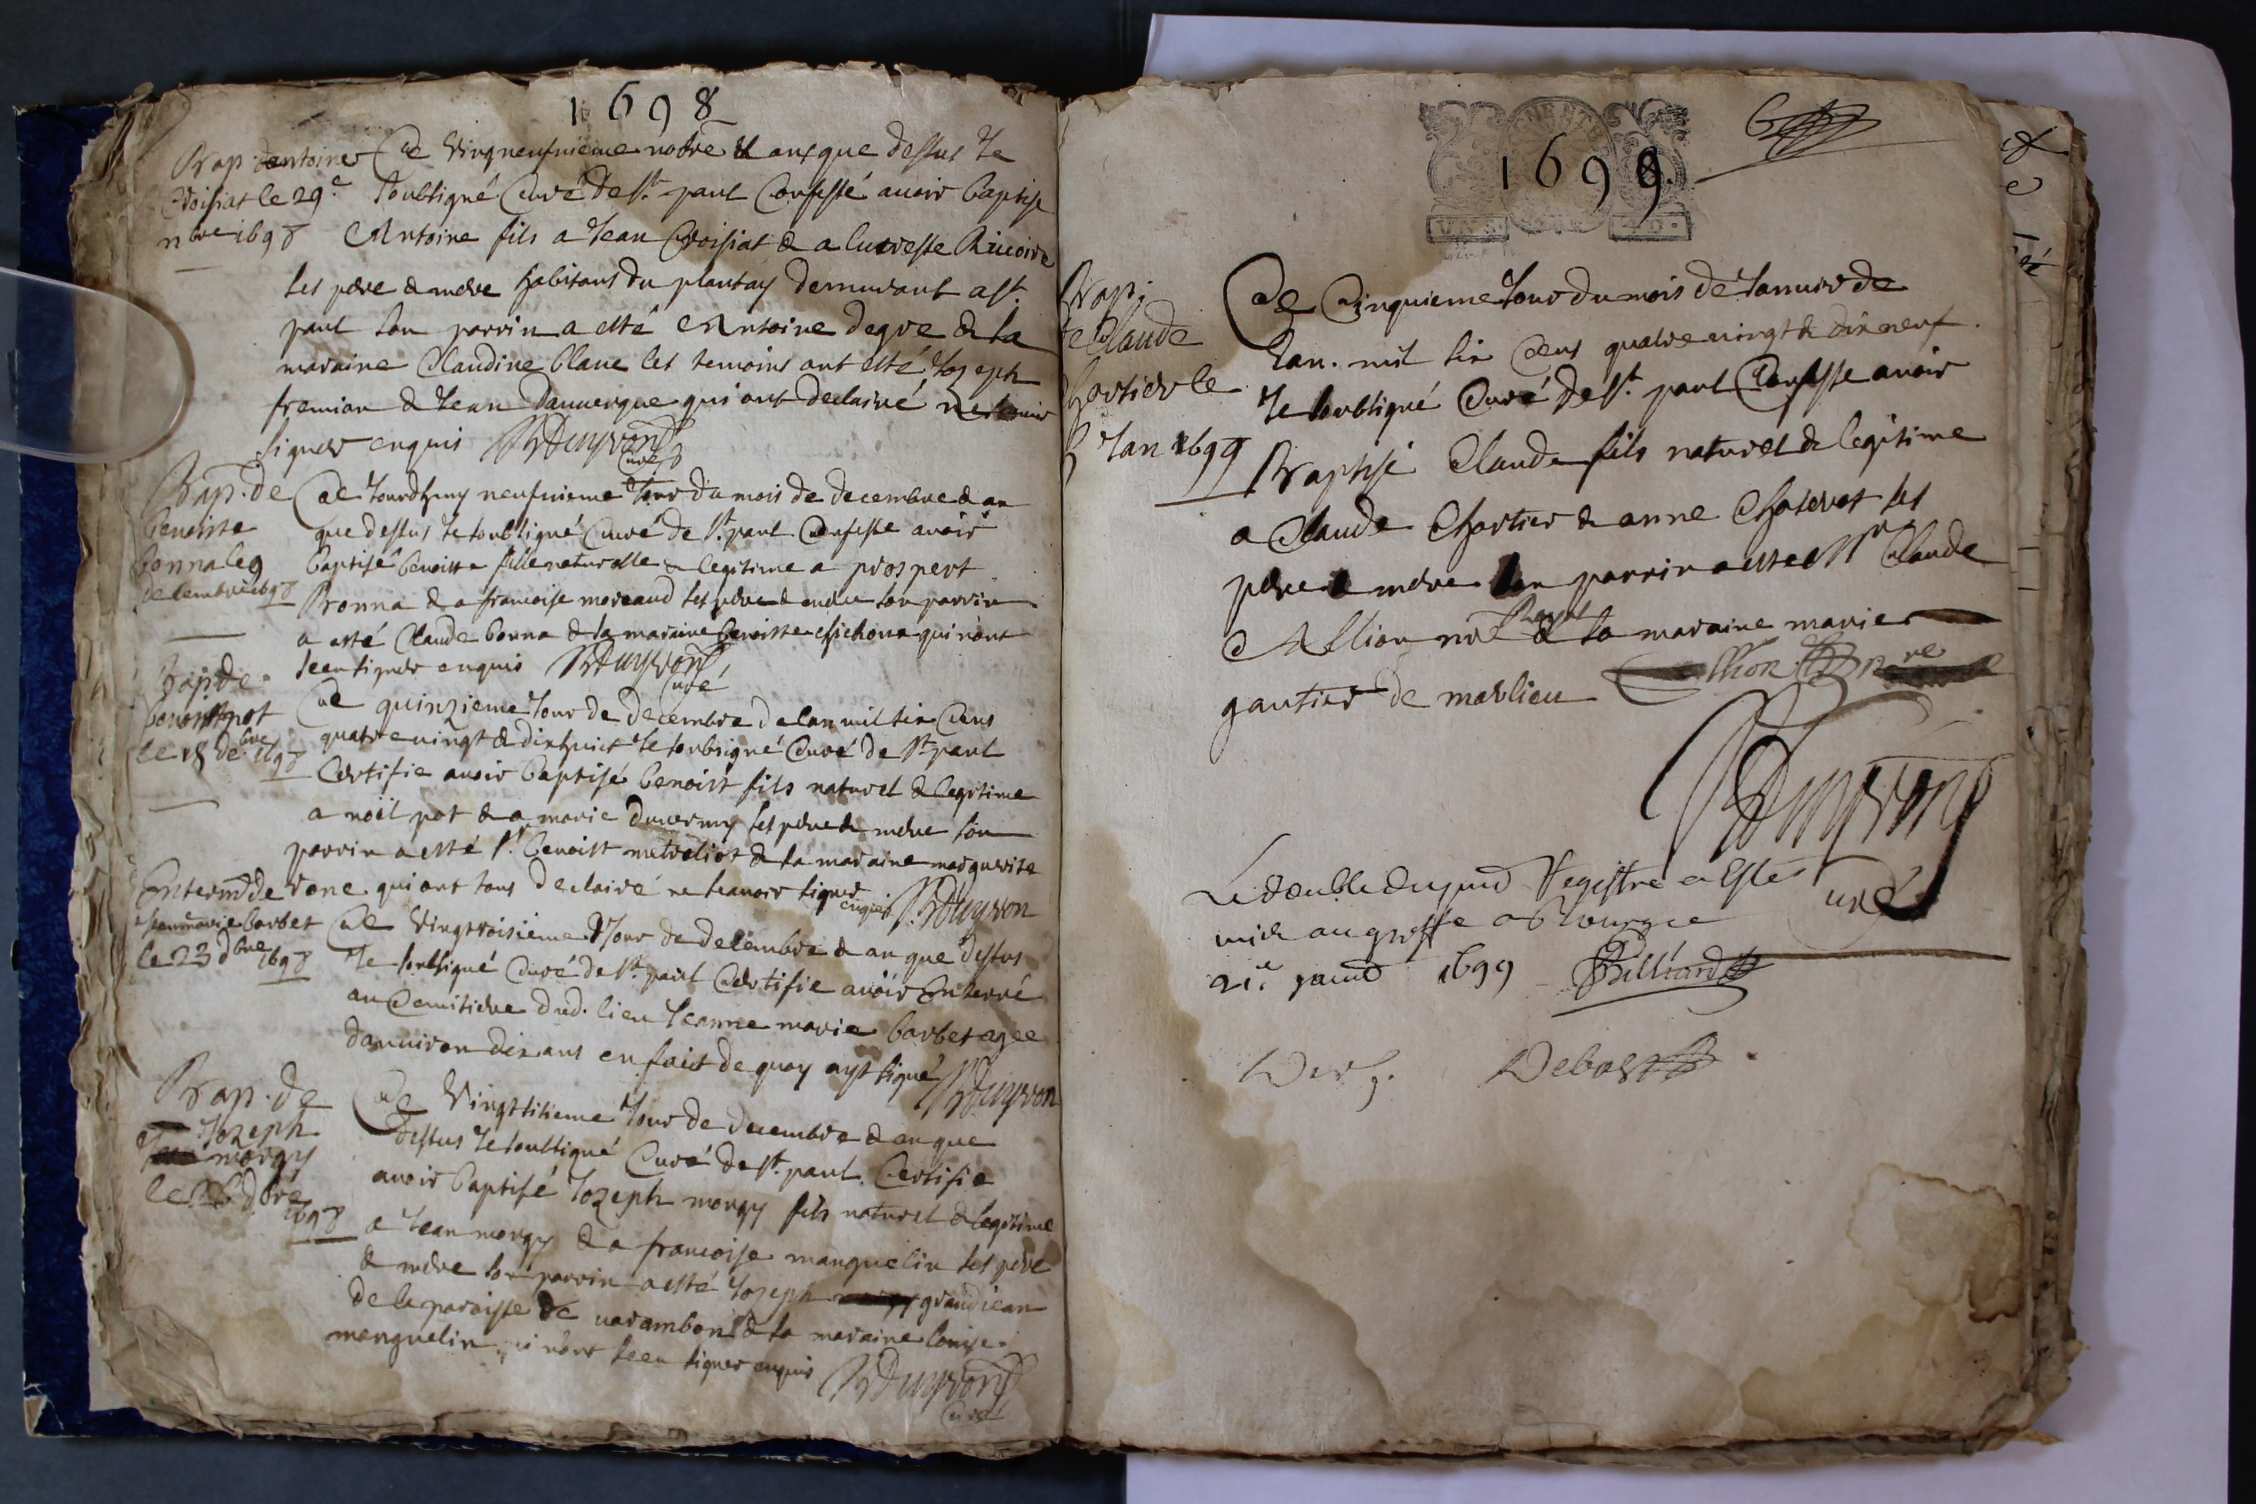 1698
Bap. dantoine
Croisiat le 29e
nbre 1698
Ce vingneufuieme nobre & anqque dessus Je
soubsigné Curé de St. paul Confesse avoir baptise
Antoine fils a Jean Croisiat & a lucresse Rivoire
ses pere & mere habitans du plantay demurant a St.
paul son parrin a esté Antoine degre & la
maraine Claudine blanc les temoins ont esté Jozeph
fremion & Jean dauuergne qui ont declairé ne scavoir
signer enquis BDuyvond
Curé
Bap. de
benoiste
bonna le 9
decembre 1698
Ce Jourdhuy neufuieme Jour du mois de decembre & an
que dessus Je soubsigné Curé de St. paul Confesse avoir
baptisé benoiste fille naturelle & legitime a prospert
Bonna & a francoise moreaud ses pere & mere son parrin
a esté Claude bonna & la maraine benoiste chichona qui nont
sceu signer enquis BDuyvond
Curé
Bap de
benoist pot
le 15 debre 1698
Ce quinzieme Jour de decembre de lan mil six Cens
quatre vingt & dixhuict Je soubsigné Curé de St. paul
Certifie avoir baptisé benoist fils naturel & legitime
a noël pot & a marie ducerny ses pere & mere son
parrin a esté Sr. benoist metraliot & la maraine marguerite
rone qui ont tous declairé ne scavoir signer enquis BDuyvon
Enterrmt de
Jeanne marie barbet
le 23 dbre 1698
Ce vingtroisieme Jour de decembre & an que dessus
Je soubsigné Curé de St. paul Certifie avoir Enterré
au Cemitiere dud. lieu Jeanne marie barbet agee
danuiron dix ans en faict de quoy ayst signé BDuyvon
Bap. de
Jozeph
morgy
le 26 dbre
1698
Ce vingtsixieme Jour de decembre & an que
dessus Je soubsigné Curé de St. paul Certifie
avoir baptisé Jozeph morgy fils naturel & legitime
a Jean morgy & a francoise manguelin ses pere
& mere son parrin a esté Jozeph grandiean
de la paroisse de uarambon & la maraine louise
manguelin qui nont sceu signer enquis BDuyvond
Curé
1699
Bap.
de Claude
Chartier le
5 Jan 1699
Ce Cinquieme Jour du mois de Januier de
Lan. mil six Cens quatre vingt & dix neuf
Je soubsigné Curé de St. paul Confesse avoir
Baptisé Claude fils naturel & legitime
a Claude Chartier & anne Chateret ses
pere & mere son parrin a esté Mr Claude
Allion nre Royal & la maraine marie
gautier de marlieu Allion nre
BDuyvond
Curé
Le double du pnt Registre a Esté
mis au greffe a bourg ce
21e januier 1699 Billiard